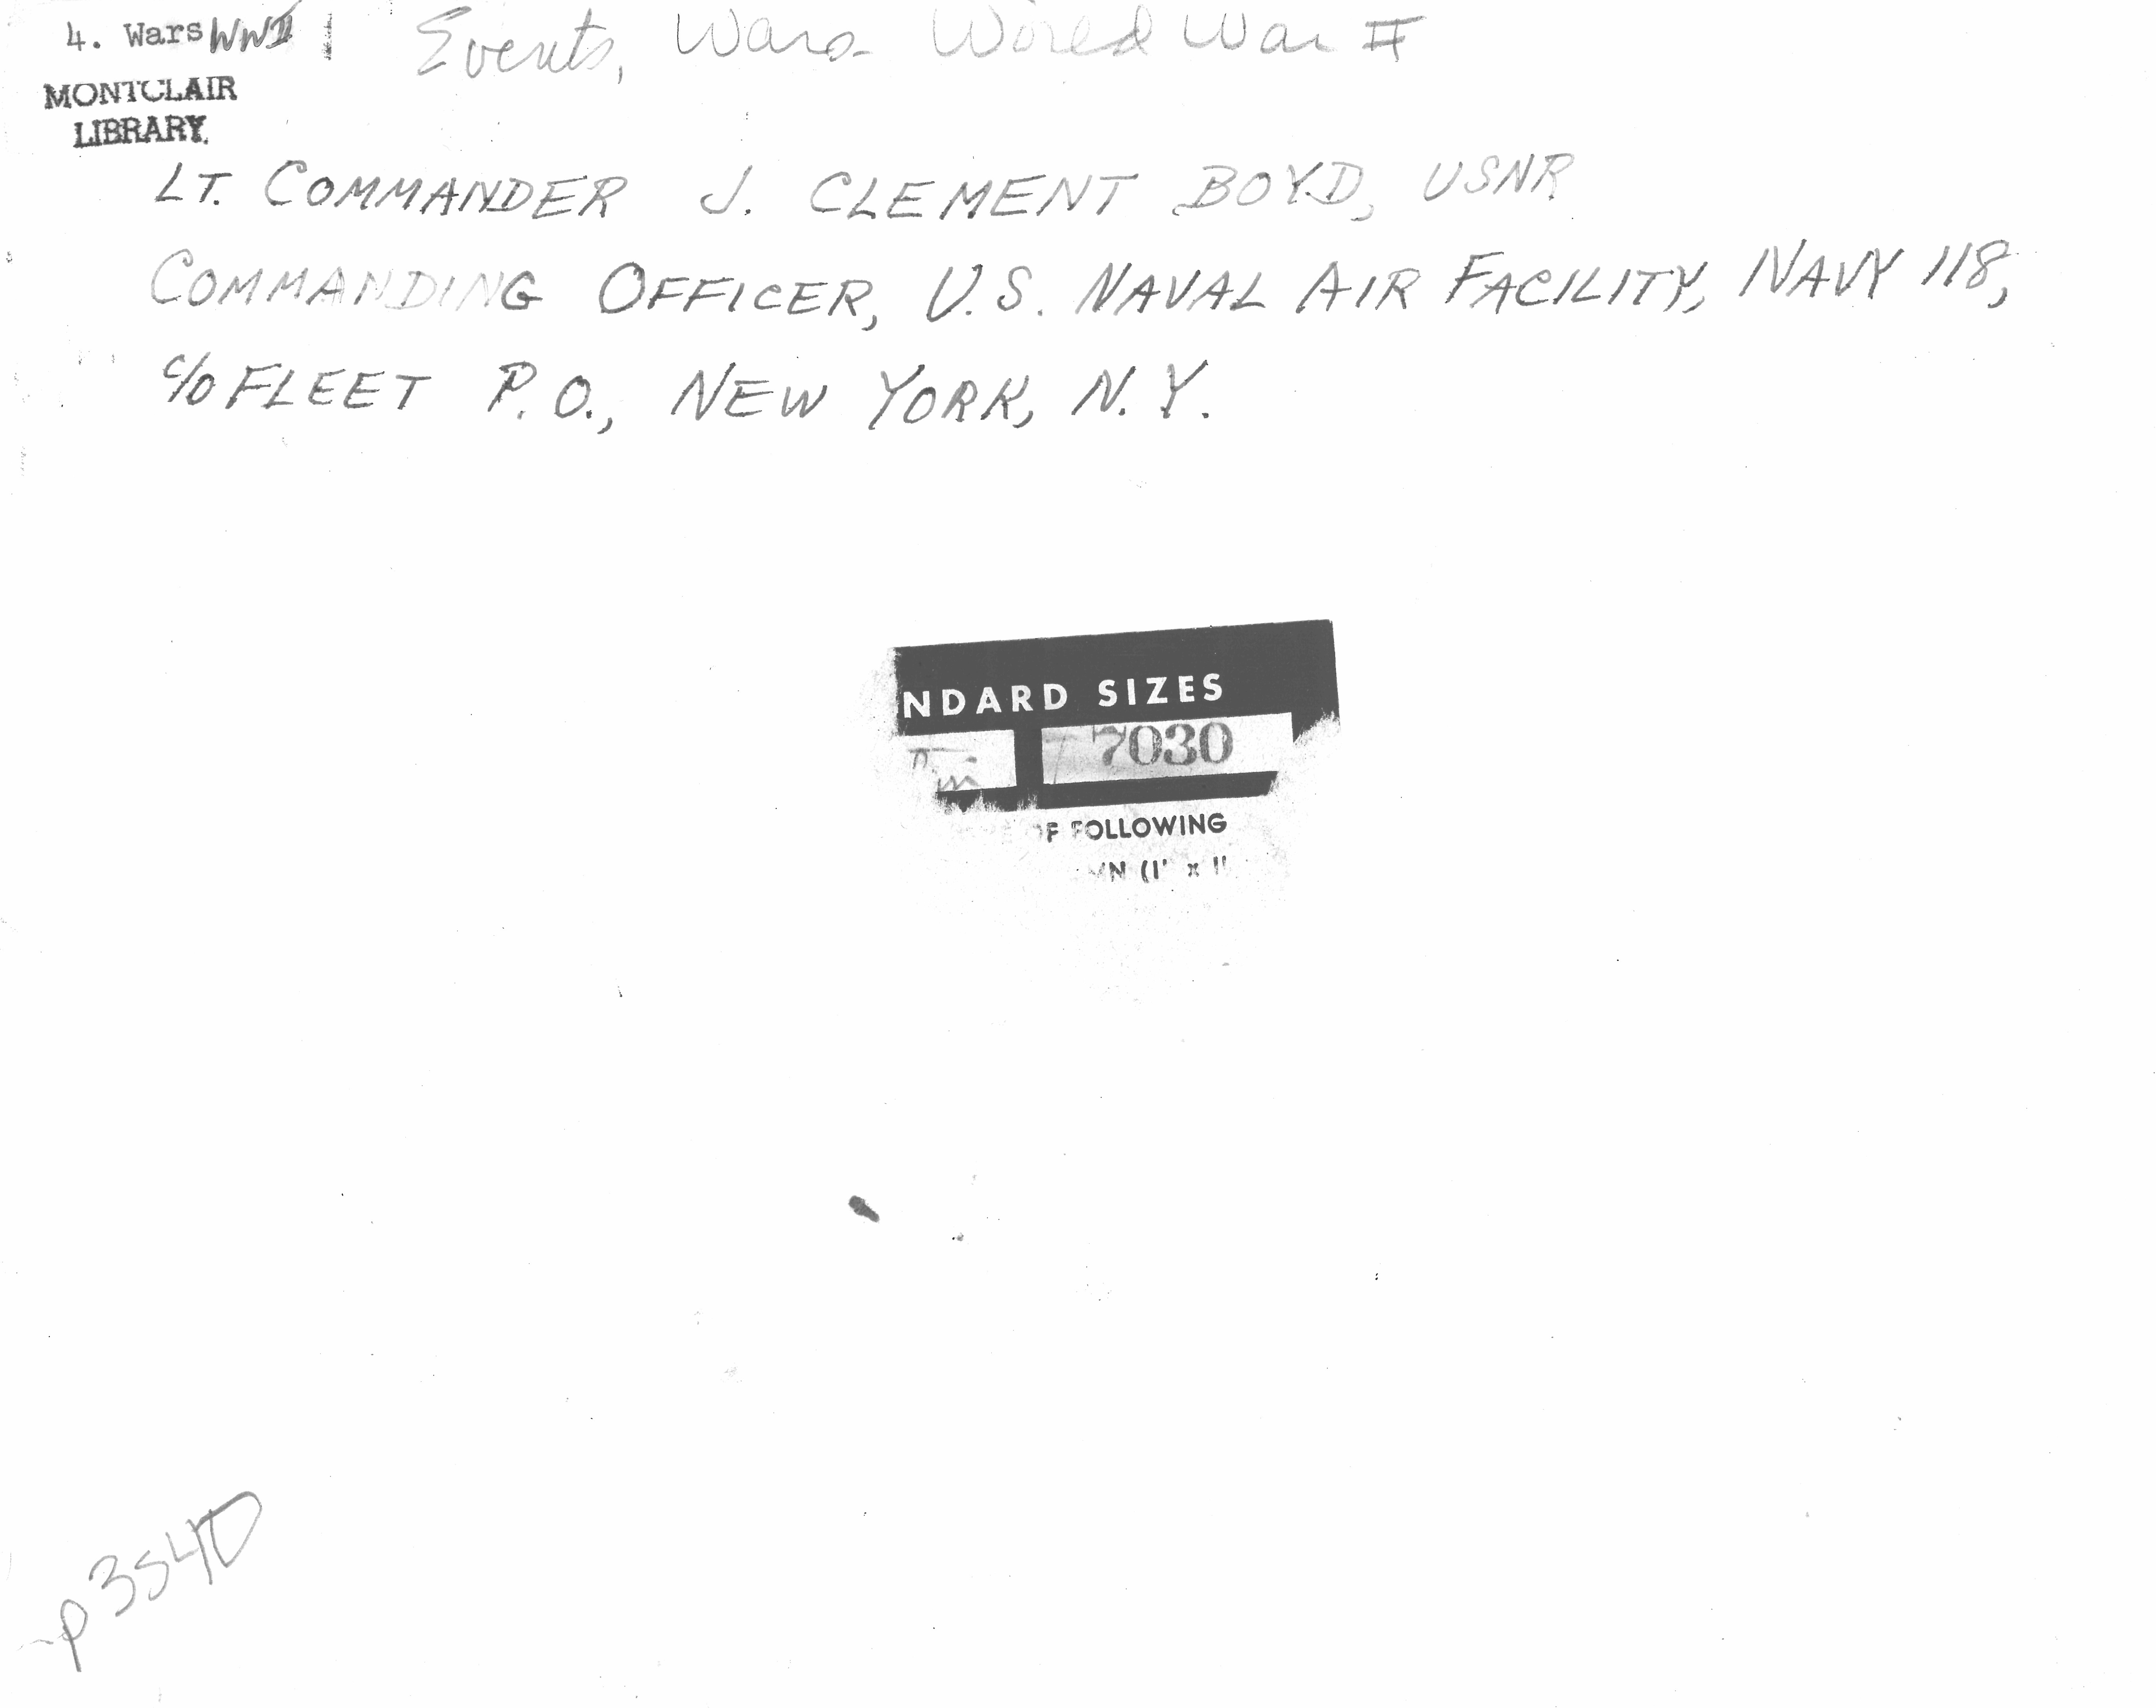 4. Wars WWII | Events, Wars- World War II
MONTCLAIR
LIBRARY.
LT. COMMANDER J. CLEMENT BOYD, USNR
COMMANDING OFFICER, U.S. NAVAL AIR FACILITY, NAVY 118,
c/o FLEET P.O., NEW YORK, N.Y.
NDARD SIZES
7030
OF FOLLOWING
N (1' x 1'
p354D